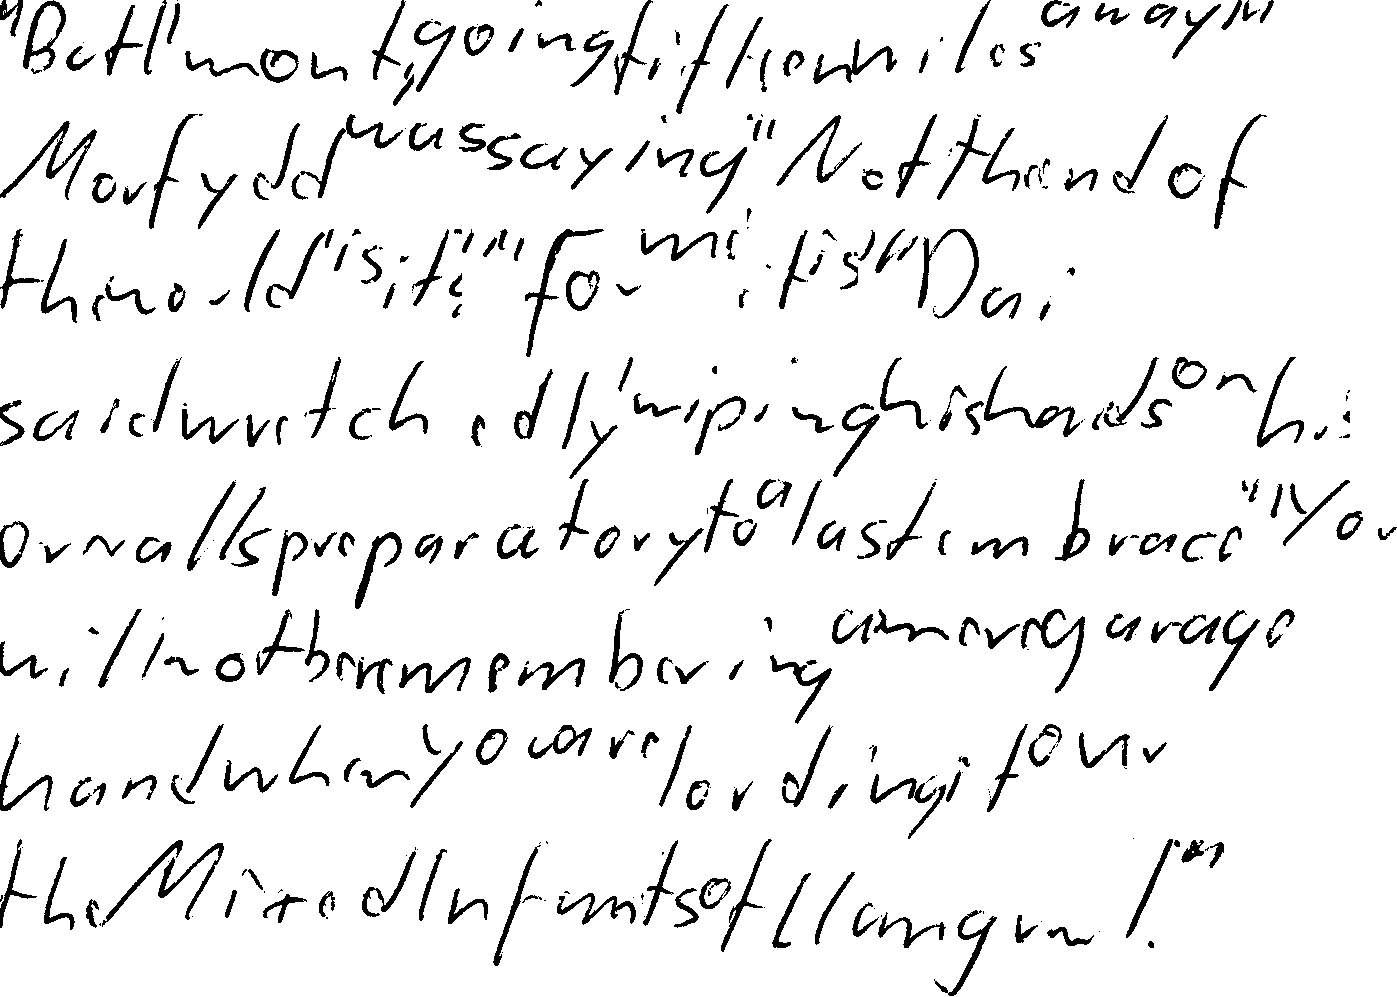 "Better I'm not, going fifteen miles away,"
Morfydd was saying. "Not the end of
the world is it?" "For me it is," Dai
said wretchedly, wiping his hands on his
overalls preparatory to a last embrace. "You
will not be remembering a mere garage
hand when you are lording it over
the Mixed Infants of Llangrw!"